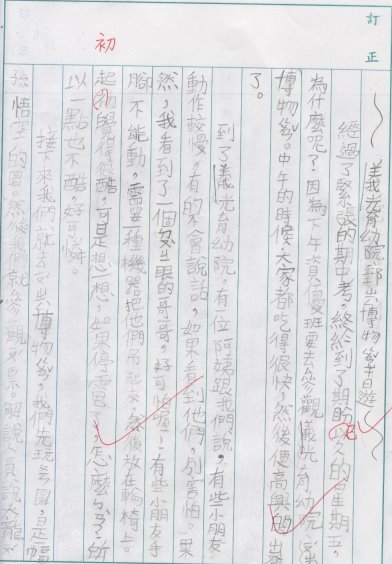 訂正
儀光育幼院 博物館 遊
經過了緊張的期中考,終於到了期盼已久的星期五。
為什麼呢?因為下午資優班要去參觀儀光育幼院
博物館。中午的時候,大家都吃得很快,然後便高興的出發
了。
到了儀光育幼院,有一位阿姨跟我們說,有些小朋友
動作較慢,有的不會說話,如果看到他們,別害怕。果
然,我看到了一個 的哥哥,好可怕喔!有些小朋友手
腳不能動,需要一種機器把他們吊起來,然後放在輪椅上。
初
起初覺得很酷,可是想一想,如果停電了,怎麼辦?所
以一點也不酷,好可憐。
接下來我們就去 博物館,我們先玩拼圖,是一幅
孫悟空的圖。然後我們就參觀郵票。解說人員說大龍郵